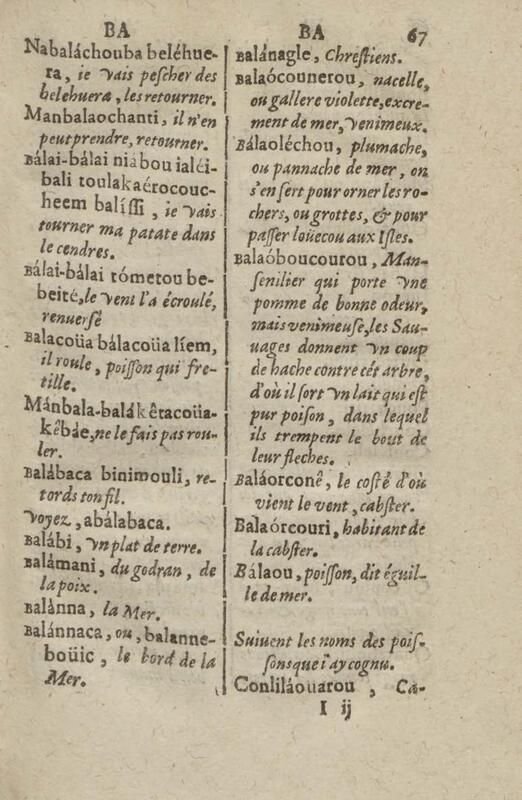 BA
Nabaláchouba beléhue-
ra, ie vais peſcher des
belehuera, les retourner.
Manbalaochanti, il n'en
peut prendre, retourner.
Bálai-bálai niábou ialéi-
bali toulakaérocouc-
heem balíſſi, ie vais
tourner ma patate dans
le cendres.
Bálai-bálai tómetou be-
beité, le vent l'a écroulé,
renuerſé
Balacoüa bálacoüa líem,
il roule, poiſſon qui fre-
tille.
Mánbala-balákêtacoüa-
kêbáe, ne le fais pas rou-
ler.
Balábaca binimouli, re-
tords ton fil.
Voyez, abálabaca.
Balábi, vn plat de terre.
Balámani, du godran, de
la poix.
Balánna, la Mer.
Balánnaca, ou, balanne-
boüic, le bord de la
Mer.
BA 67
Balánagle, Chreſtiens.
Balaócounerou, nacelle,
ou gallere violette, excre-
ment de mer, venimeux.
Bálaoléchou, plumache,
ou pannache de mer, on
s'en ſert pour orner les ro-
chers, ou grottes, & pour
paſſer loüecou aux Iſles.
Balaóboucourou, Man-
ſenilier qui porte vne
pomme de bonne odeur,
mais venimeuſe, les Sau-
uages donnent vn coup
de hache contre cét arbre,
d'où il ſort vn lait qui eſt
pur poiſon, dans lequel
ils trempent le bout de
leur fleches.
Baláorconê, le coſté d'où
vient le vent, cabſter.
Balaórcouri, habitant de
la cabſter.
Bálaou, poiſſon, dit éguil-
le de mer.
Suiuent les noms des poiſ-
ſons que i'ay cognu.
Conliláouarou, Ca-
I ij